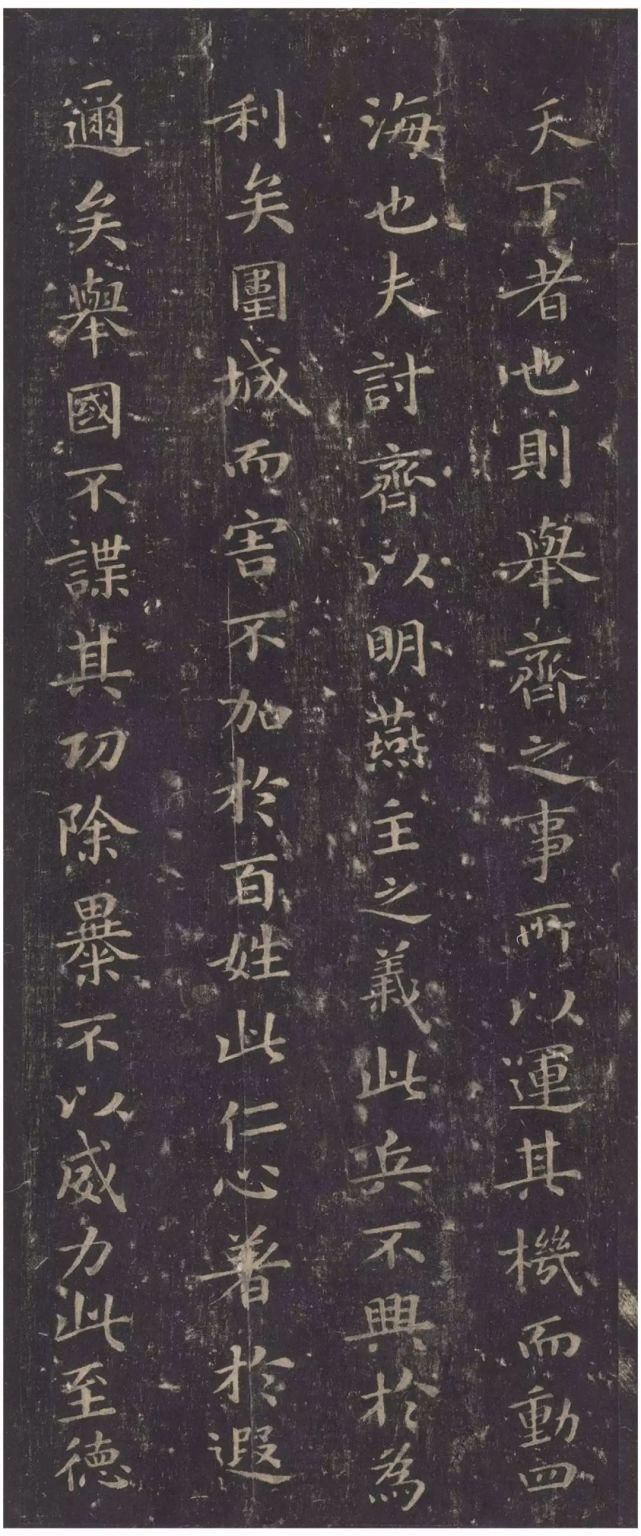 天下者也則舉齊之事所以運其機而動四
海也夫討齊以明燕主之義此兵不興於為
利矣圍城而害不加於百姓此仁心著於遐
邇矣舉國不謀其功除暴不以威力此至德